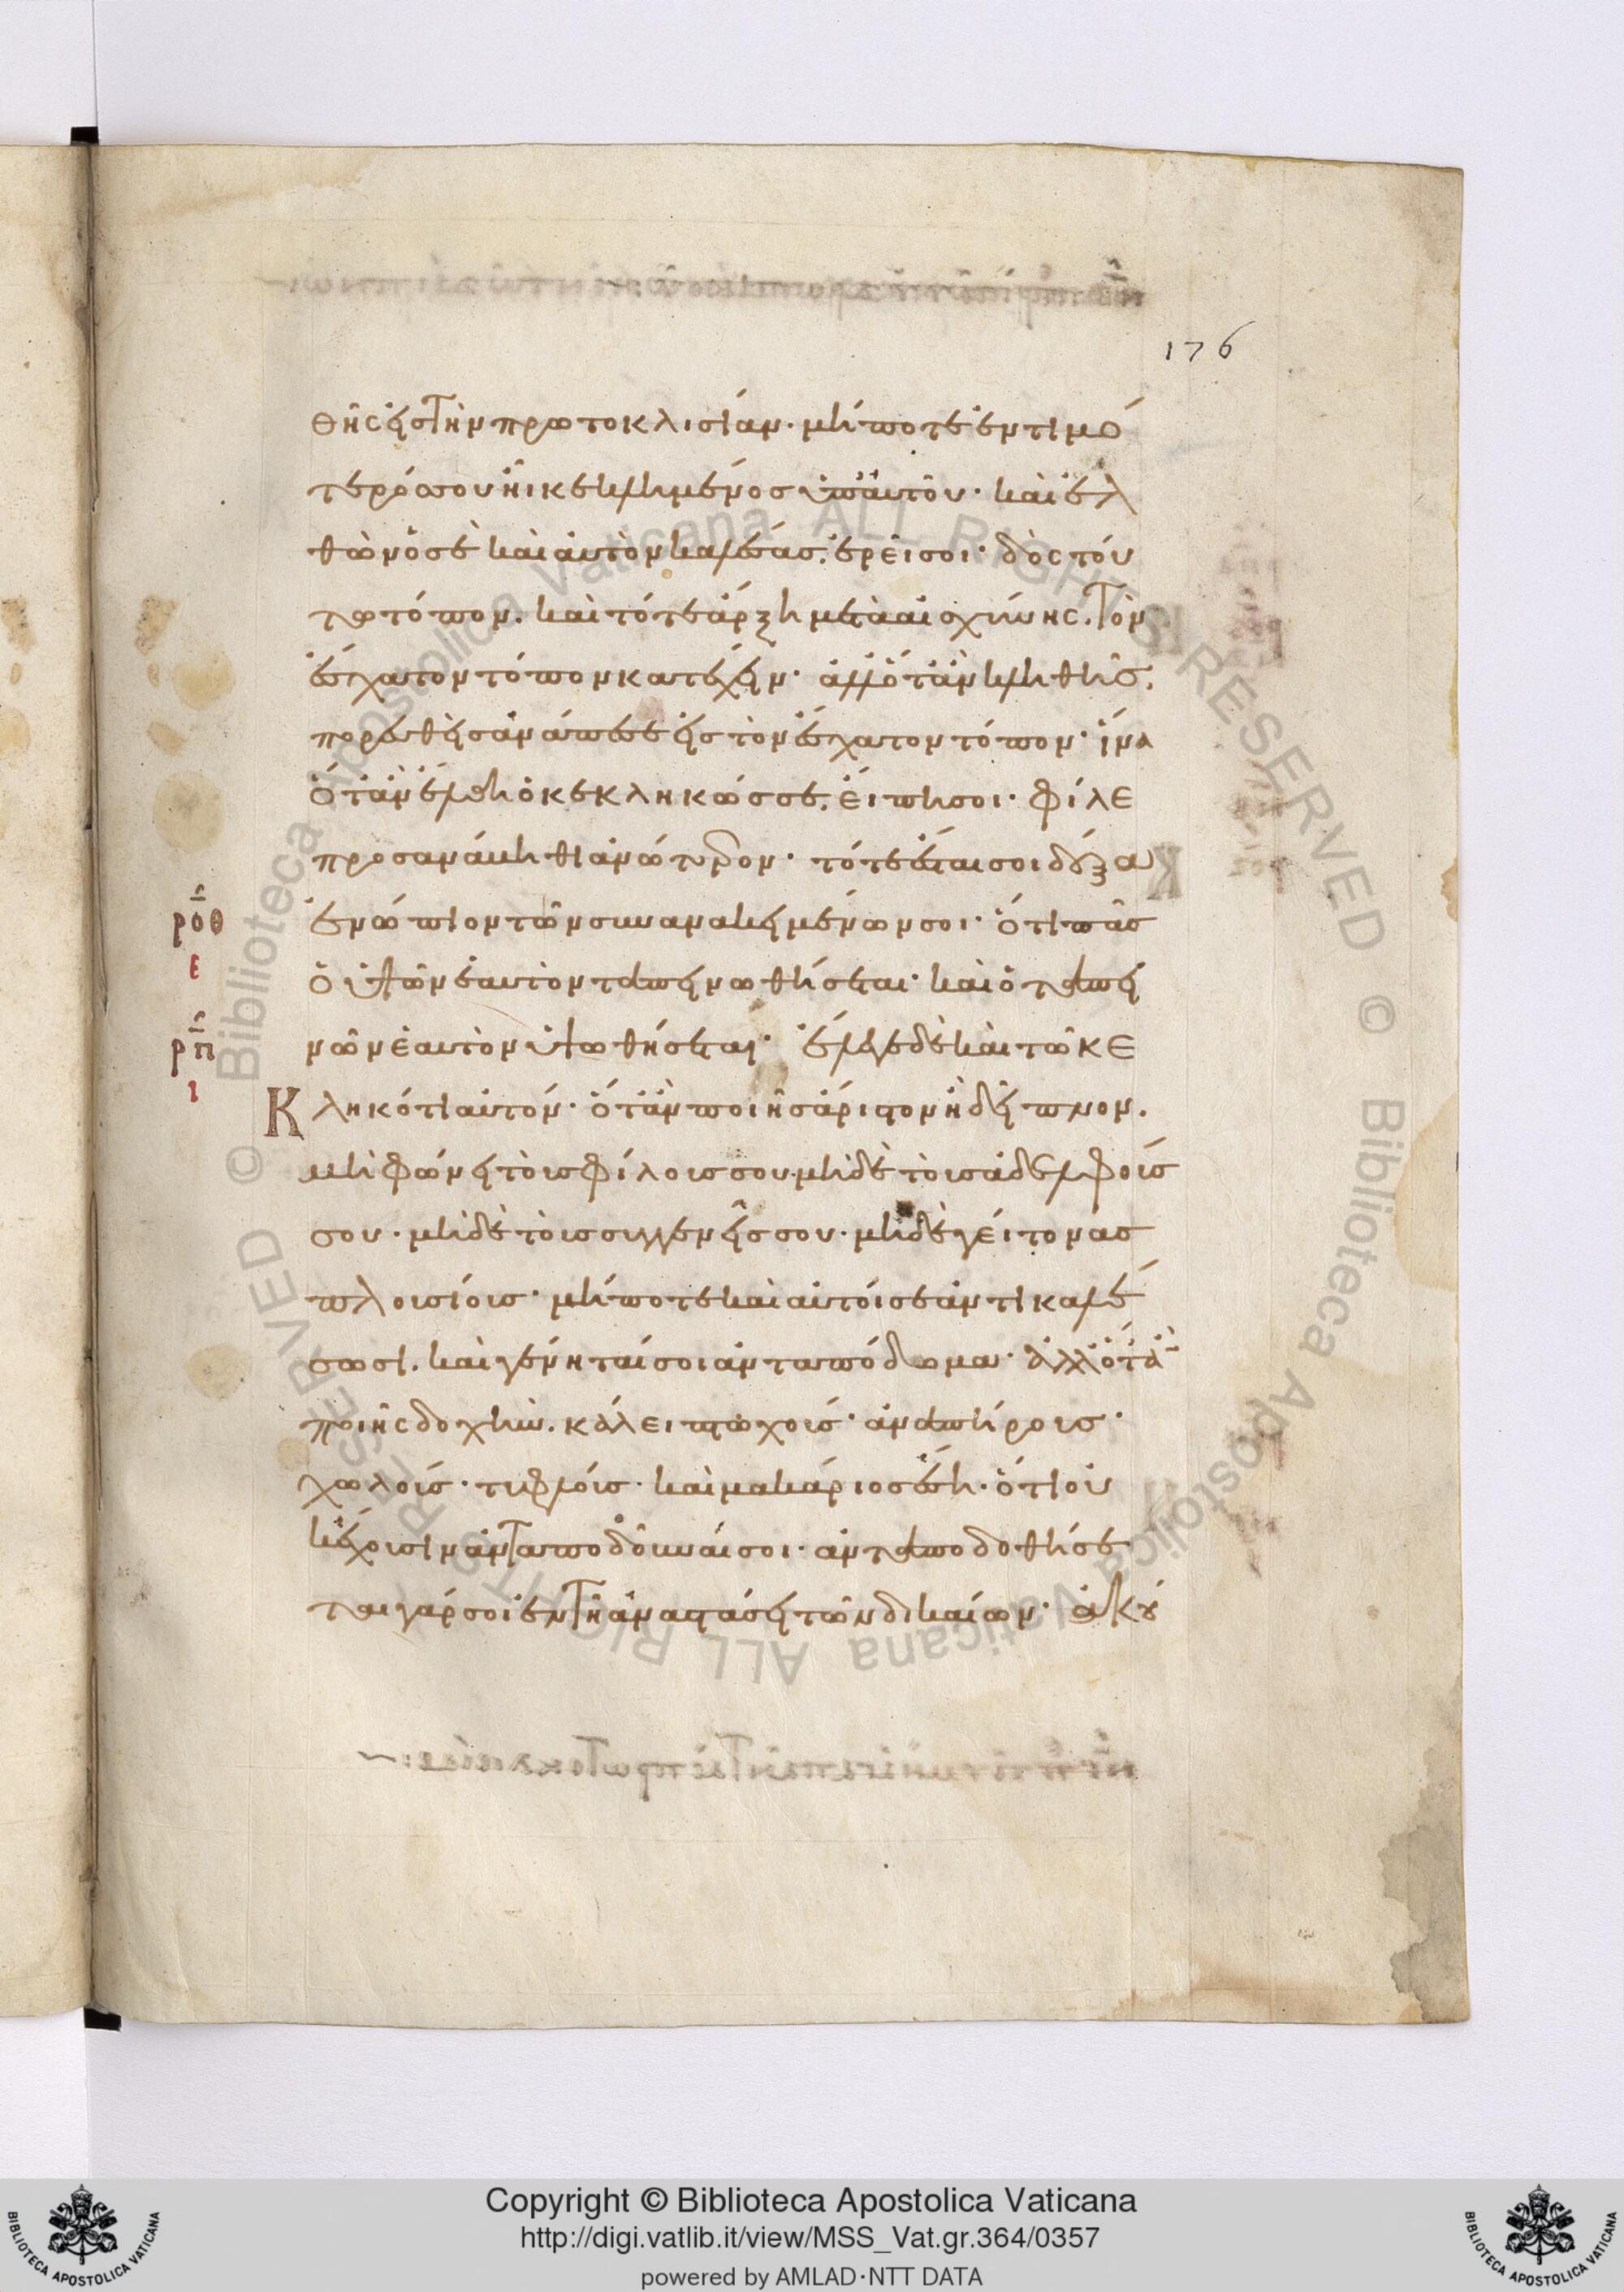 176
θῆς εἰς τὴν πρωτοκλισίαν· μήποτε ἐντιμό
τερός σου ἦ κεκλημένος ὑπ' αὐτοῦ· καὶ ἐλ
θὼν ὁ σὲ καὶ αὐτὸν καλέσας. ἐρεῖ σοι· δὸς τού
τω τόπον. καὶ τότε ἄρξη μετὰ αἰσχύνης. τὸν
ἔσχατον τόπον κατέχειν· ἀλλ' ὅταν κληθῆς.
πορευθεὶς ἀνάπεσε εἰς τὸν ἔσχατον τόπον· ἵνα
ὅταν ἔλθη ὁ κεκληκώς σε. εἴπη σοι· φίλε
προσανάβηθι ἀνώτερον· τότε ἔσται σοι δόξα
ροθ
ε
ἐνώπιον τῶν συνανακειμένων σοι· ὅτι πᾶς
ὁ ὑψῶν ἑαυτὸν ταπεινωθήσεται· καὶ ὁ ταπει
ρπ
ι
νῶν ἑαυτὸν ὑψωθήσεται· ἔλεγε δὲ καὶ τῶ κε
Κ
κληκότι αὐτόν· ὅταν ποιῆς ἄριστον ἢ δεῖπνον.
μὴ φώνει τοὺς φίλους σου· μηδὲ τοὺς ἀδελφούς
σου· μηδὲ τοὺς συγγενεῖς σου· μηδὲ γείτονας
πλουσίους· μήποτε καὶ αὐτοί σε ἀντικαλέ
σωσι. καὶ γένηταί σοι ἀνταπόδομα· ἀλλ' ὅταν
ποιῆς δοχὴν. κάλει πτωχούς· ἀναπήρους·
χωλούς· τυφλούς· καὶ μακάριος ἔση· ὅτι οὐ
κ ἔχουσιν ἀνταποδοῦναί σοι· ἀνταποδοθήσε
ται γάρ σοι ἐν τῆ ἀναστάσει τῶν δικαίων· ἀκού
Copyright © Biblioteca Apostolica Vaticana
http://digi.vatlib.it/view/MSS_Vat.gr.364/0357
powered by AMLAD·NTT DATA
BIBLIOTECA APOSTOLICA VATICANA
BIBLIOTECA APOSTOLICA VATICANA
© Biblioteca Apostolica Vaticana ALL RIGHTS RESERVED
© Biblioteca Apostolica Vaticana ALL RIGHTS RESERVED